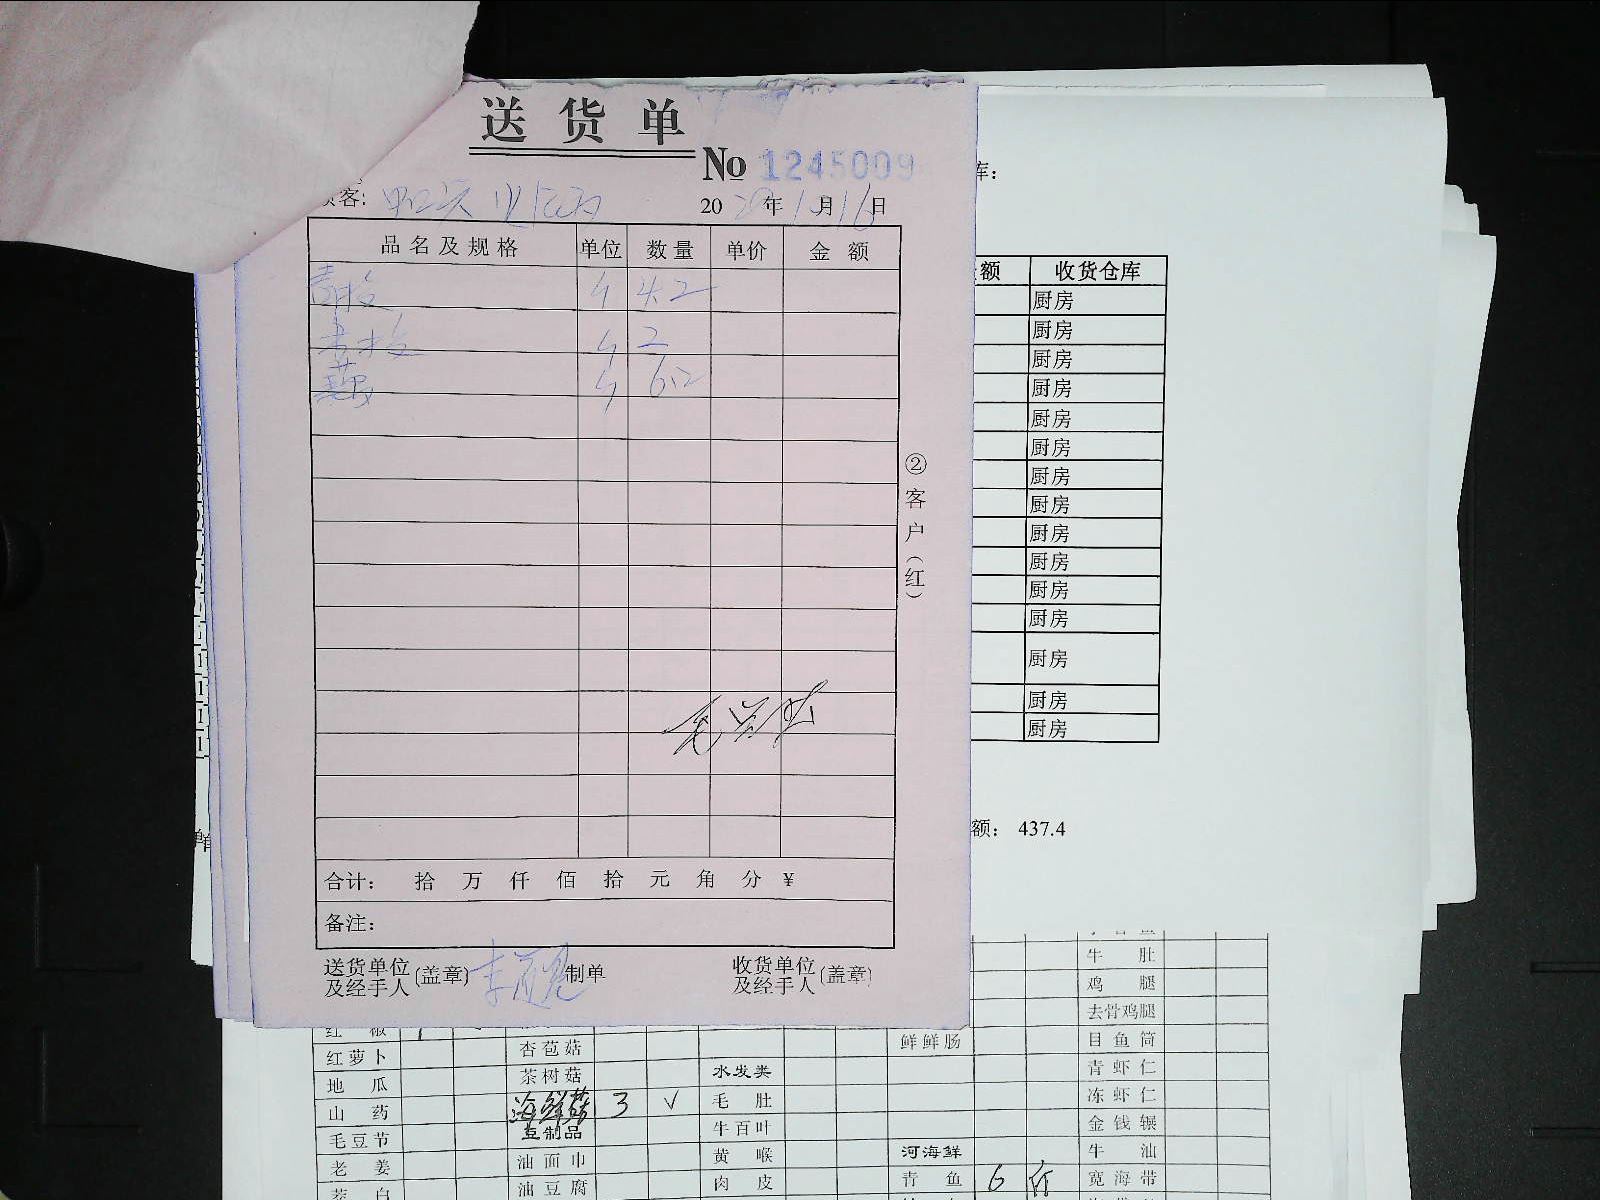 送货单
No 1245009
客:
20 年1月16日
品名及规格 单位 数量 单价 金额
青椒 斤 4.2
斤 2
斤 6.2
②客户(红)
合计: 拾 万 仟 佰 拾 元 角 分 ¥
备注:
送货单位及经手人(盖章) 制单 收货单位及经手人(盖章)
库:
额 收货仓库
厨房
厨房
厨房
厨房
厨房
厨房
厨房
厨房
厨房
厨房
厨房
厨房
厨房
厨房
厨房
额: 437.4
牛肚
鸡腿
去骨鸡腿
红椒 1 鲜鲜肠 目鱼筒
红萝卜 杏苞菇 青虾仁
地瓜 茶树菇 水发类 冻虾仁
山药 海鲜菇 3 √ 毛肚 金钱辗
毛豆节 豆制品 牛百叶
老姜 油面巾 黄喉 河海鲜 牛油
茭白 油豆腐 肉皮 青鱼 6 宽海带